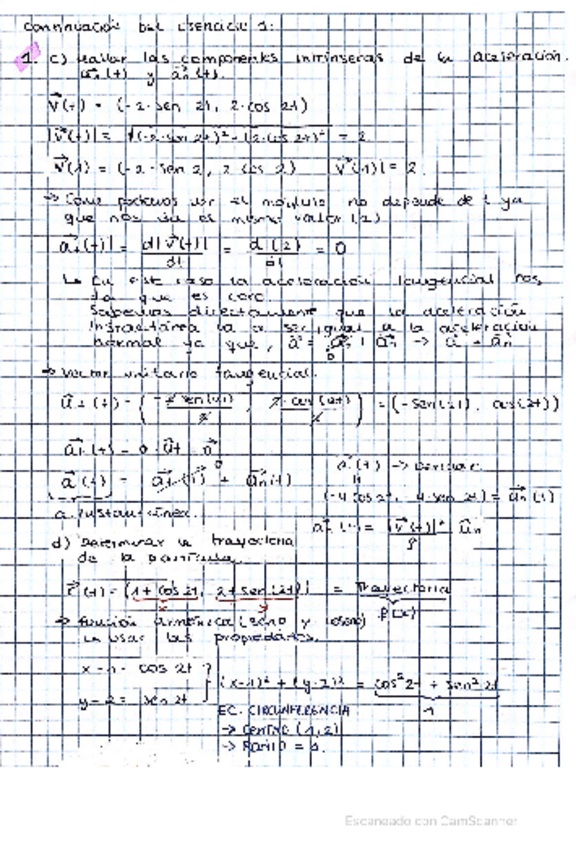 Continuación del Ejercicio 1:
1 c) Hallar las componentes intrínsecas de la aceleración.
at(t) y an(t).
v(t) = (-2·sen 2t, 2·cos 2t)
|v(t)| = √(-2·sen 2t)² + (2·cos 2t)² = 2
v(1) = (-2·sen 2, 2 cos 2) |v(1)| = 2
→ Como podemos ver el módulo no depende de t ya
que nos da el mismo valor (2)
at(t) = d|v(t)| / dt = d(2) / dt = 0
↳ En este caso la aceleración tangencial nos
da que es cero.
Sabemos directamente que la aceleración
instantánea va a ser igual a la aceleración
normal ya que, a = at + an → a = an
0
→ Vector unitario tangencial.
ut(t) = (-2 sen(2t) / 2, 2·cos(2t) / 2) = (-sen(2t), cos(2t))
at(t) = 0·ut = 0
a(t) → Derivar
a(t) = at(t) + an(t)
0
(-4 cos 2t, -4 sen 2t) = an(t)
a. instantánea.
an(t) = |v(t)|² / ρ · un
d) Determinar la trayectoria
de la partícula.
r(t) = (1 + cos 2t, 2 + sen(2t)) = Trayectoria
x y f(x)
→ función armónica (seno y coseno)
usar las propiedades.
x - 1 = cos 2t
y - 2 = sen 2t
(x-1)² + (y-2)² = cos² 2t + sen² 2t
1
EC. CIRCUNFERENCIA
→ Centro (1,2)
→ Radio = 1.
Escaneado con CamScanner